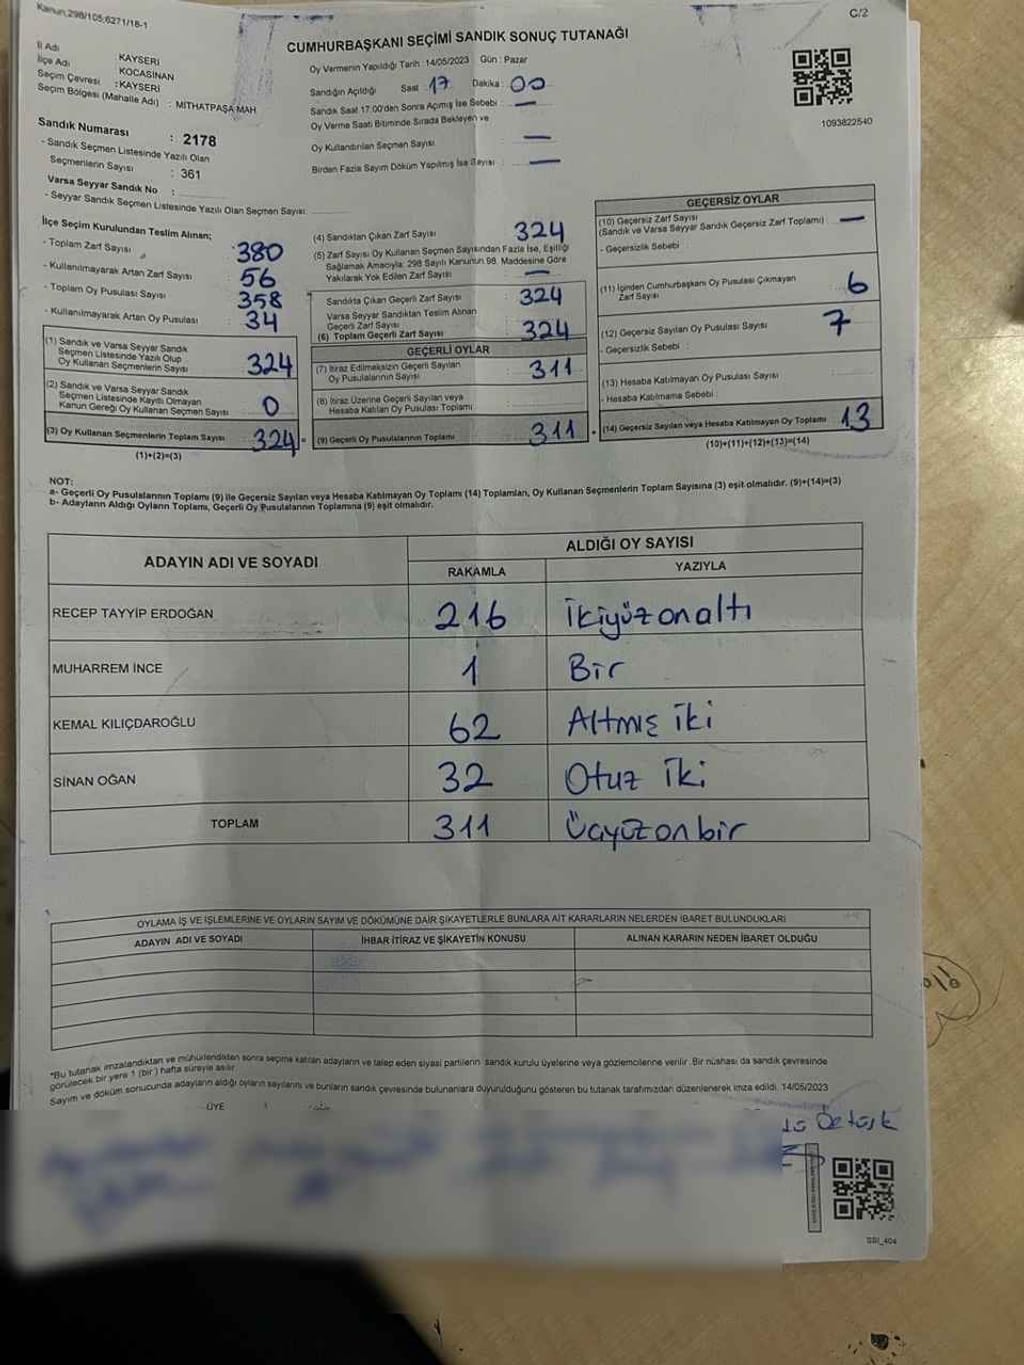 Kanun,298/105;6271/18-1
C/2
CUMHURBAŞKANI SEÇİMİ SANDIK SONUÇ TUTANAĞI
İl Adı KAYSERİ
İlçe Adı KOCASİNAN
Seçim Çevresi : KAYSERİ
Seçim Bölgesi (Mahalle Adı) : MİTHATPAŞA MAH
Sandık Numarası : 2178
- Sandık Seçmen Listesinde Yazılı Olan
Seçmenlerin Sayısı : 361
Varsa Seyyar Sandık No :
- Seyyar Sandık Seçmen Listesinde Yazılı Olan Seçmen Sayısı:
Oy Vermenin Yapıldığı Tarih : 14/05/2023 Gün : Pazar
Sandığın Açıldığı Saat : 17 Dakika : 00
Sandık Saat 17.00'den Sonra Açımış İse Sebebi : —
Oy Verme Saati Bitiminde Sırada Bekleyen ve
Oy Kullandırılan Seçmen Sayısı —
Birden Fazla Sayım Döküm Yapılmış İse Sayısı : —
1093822540
İlçe Seçim Kurulundan Teslim Alınan;
- Toplam Zarf Sayısı : 380
- Kullanılmayarak Artan Zarf Sayısı : 56
- Toplam Oy Pusulası Sayısı : 358
- Kullanılmayarak Artan Oy Pusulası : 34
(1) Sandık ve Varsa Seyyar Sandık
Seçmen Listesinde Yazılı Olup
Oy Kullanan Seçmenlerin Sayısı : 324
(2) Sandık ve Varsa Seyyar Sandık
Seçmen Listesinde Kayıtlı Olmayan
Kanun Gereği Oy Kullanan Seçmen Sayısı : 0
(3) Oy Kullanan Seçmenlerin Toplam Sayısı : 324
(1)+(2)=(3)
(4) Sandıktan Çıkan Zarf Sayısı : 324
(5) Zarf Sayısı Oy Kullanan Seçmen Sayısından Fazla İse, Eşitliği
Sağlamak Amacıyla: 298 Sayılı Kanunun 98. Maddesine Göre
Yakılarak Yok Edilen Zarf Sayısı : —
Sandıkta Çıkan Geçerli Zarf Sayısı : 324
Varsa Seyyar Sandıktan Teslim Alınan
Geçerli Zarf Sayısı :
(6) Toplam Geçerli Zarf Sayısı : 324
GEÇERLİ OYLAR
(7) İtiraz Edilmeksizin Geçerli Sayılan
Oy Pusulalarının Sayısı : 311
(8) İtiraz Üzerine Geçerli Sayılan veya
Hesaba Katılan Oy Pusulası Toplamı :
(9) Geçerli Oy Pusulalarının Toplamı : 311
GEÇERSİZ OYLAR
(10) Geçersiz Zarf Sayısı
(Sandık ve Varsa Seyyar Sandık Geçersiz Zarf Toplamı) : —
- Geçersizlik Sebebi :
(11) İçinden Cumhurbaşkanı Oy Pusulası Çıkmayan
Zarf Sayısı : 6
(12) Geçersiz Sayılan Oy Pusulası Sayısı : 7
- Geçersizlik Sebebi :
(13) Hesaba Katılmayan Oy Pusulası Sayısı :
- Hesaba Katılmama Sebebi :
(14) Geçersiz Sayılan veya Hesaba Katılmayan Oy Toplamı : 13
(10)+(11)+(12)+(13)=(14)
NOT:
a- Geçerli Oy Pusulalarının Toplamı (9) ile Geçersiz Sayılan veya Hesaba Katılmayan Oy Toplamı (14) Toplamları, Oy Kullanan Seçmenlerin Toplam Sayısına (3) eşit olmalıdır. (9)+(14)=(3)
b- Adayların Aldığı Oyların Toplamı, Geçerli Oy Pusulalarının Toplamına (9) eşit olmalıdır.
ADAYIN ADI VE SOYADI ALDIĞI OY SAYISI
RAKAMLA YAZIYLA
RECEP TAYYİP ERDOĞAN 216 İkiyüzonaltı
MUHARREM İNCE 1 Bir
KEMAL KILIÇDAROĞLU 62 Altmış iki
SİNAN OĞAN 32 Otuz iki
TOPLAM 311 Üçyüzonbir
OYLAMA İŞ VE İŞLEMLERİNE VE OYLARIN SAYIM VE DÖKÜMÜNE DAİR ŞİKAYETLERLE BUNLARA AİT KARARLARIN NELERDEN İBARET BULUNDUKLARI
ADAYIN ADI VE SOYADI İHBAR İTİRAZ VE ŞİKAYETİN KONUSU ALINAN KARARIN NEDEN İBARET OLDUĞU
*Bu tutanak imzalandıktan ve mühürlendikten sonra seçime katılan adayların ve talep eden siyasi partilerin sandık kurulu üyelerine veya gözlemcilerine verilir. Bir nüshası da sandık çevresinde
görülecek bir yere 1 (bir) hafta süreyle asılır.
Sayım ve döküm sonucunda adayların aldığı oyların sayılarını ve bunların sandık çevresinde bulunanlara duyurulduğunu gösteren bu tutanak tarafımızdan düzenlenerek imza edildi. 14/05/2023
ÜYE